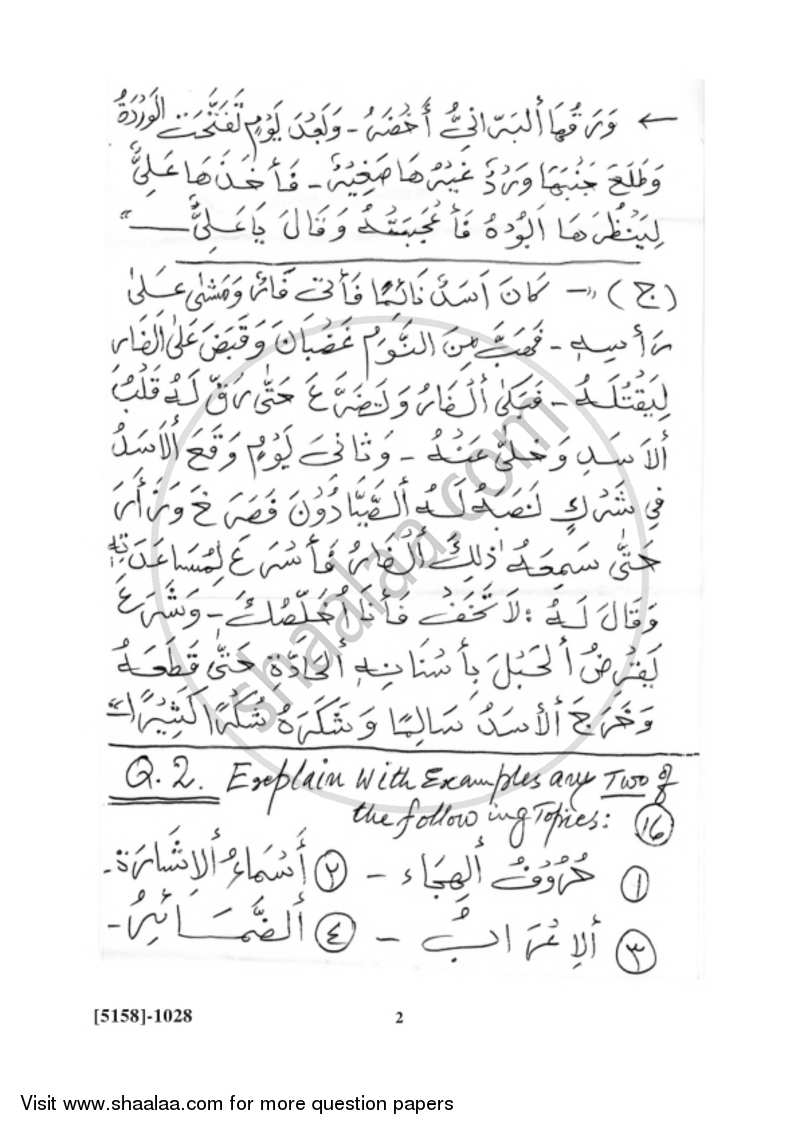 ← وَرَقُهَا أَلبَرَّانِيُّ أَخْضَرُ - وَبَعْدَ يَوْمٍ تَفَتَّحَتِ الوَرْدَةُ
وَطَلَعَ جَنْبَهَا وَرْدٌ غَيْرُهَا صَغِيرٌ - فَأَخَذَهَا عَلِيٌّ
لِيَنْظُرَهَا اَبُوْهُ فَأَعْجَبَتْهُ وَقَالَ يَا عَلِيُّ —"
(ج) "- كَانَ اَسَدٌ نَائِمًا فَأَتَى فَأْرٌ وَمَشٰى عَلىٰ
رَأسِهِ - فَهَبَّ مِنَ النَّوْمِ غَضْبَانَ وَقَبَضَ عَلَى الْفَارِ
لِيَقْتُلَهُ - فَبَكٰى أَلْفَارُ وَتَضَرَّعَ حَتّٰى رَقَّ لَهُ قَلْبُ
ألاَسَدِ وَخَلّٰى عَنْهُ - وَثَانِيَ يَوْمٍ وَقَعَ أَلأَسَدُ
فِي شَرَكٍ نَصَبَهُ لَهُ أَلصَّيَّادُوْنَ فَصَرَخَ وَزَأَرَ
حَتّٰى سَمِعَهُ ذٰلِكَ أَلْفَارُ فَأَسْرَعَ لِمُسَاعَدَتِهِ
وَقَالَ لَهُ : لاَ تَخَفْ فَأَنَا أُخَلِّصُكَ - وَشَرَعَ
يَقْرِضُ أَلْحَبْلَ بِأَسْنَانِهِ أَلْحَادَّةِ حَتّٰى قَطَعَهُ
وَخَرَجَ أَلأَسَدُ سَالِمًا وَشَكَرَهُ شُكْرًا كَثِيْرًا"
Q.2. Explain with Examples any Two of
the following Topics: (16)
① حُرُوْفُ أَلهِجَاء - ② أَسْمَاءُ أَلإِشَارَة -
③ ألاِعْرَابُ - ④ أَلضَّمَائِرُ -
[5158]-1028 2
shaalaa.com
Visit www.shaalaa.com for more question papers